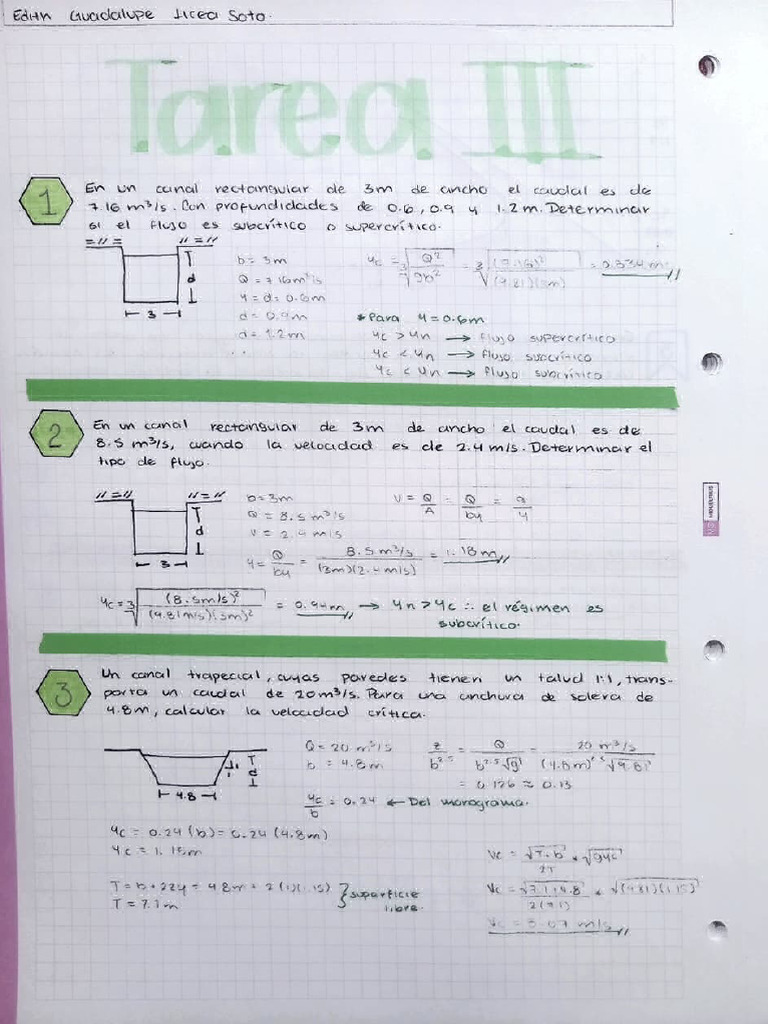 Edith Guadalupe Licea Soto.
Tarea III
1
En un canal rectangular de 3m de ancho el caudal es de
7.16 m³/s. Con profundidades de 0.6, 0.9 y 1.2 m. Determinar
si el flujo es subcrítico o supercrítico.
b = 3m
Q = 7.16m³/s
y = d = 0.6m
d = 0.9m
d = 1.2m
3
d
* Para y = 0.6m
yc > yn → flujo supercrítico
yc < yn → flujo subcrítico
yc < yn → flujo subcrítico
2
En un canal rectangular de 3m de ancho el caudal es de
8.5 m³/s, cuando la velocidad es de 2.4 m/s. Determinar el
tipo de flujo.
d
3
b=3m
Q = 8.5 m³/s
V = 2.4 m/s
V = Q/A = Q/by = q/y
y = Q/by = 8.5 m³/s / (3m)(2.4 m/s) = 1.18 m
yc = ∛((8.5m/s)²/(9.81m/s)(3m)²) = 0.94m → yn > yc ∴ el régimen es
subcrítico.
3
Un canal trapecial, cuyas paredes tienen un talud 1:1, trans-
porta un caudal de 20m³/s. Para una anchura de solera de
4.8m, calcular la velocidad crítica.
4.8
d
Q = 20 m³/s
b = 4.8m
= 0.126 ≈ 0.13
yc/b = 0.24 ← Del monograma.
yc = 0.24 (b) = 0.24 (4.8m)
yc = 1.15m
T = b + 2zy = 4.8m + 2(1)(1.15)
T = 7.1m
} superficie
libre.
Vc = 3.07 m/s